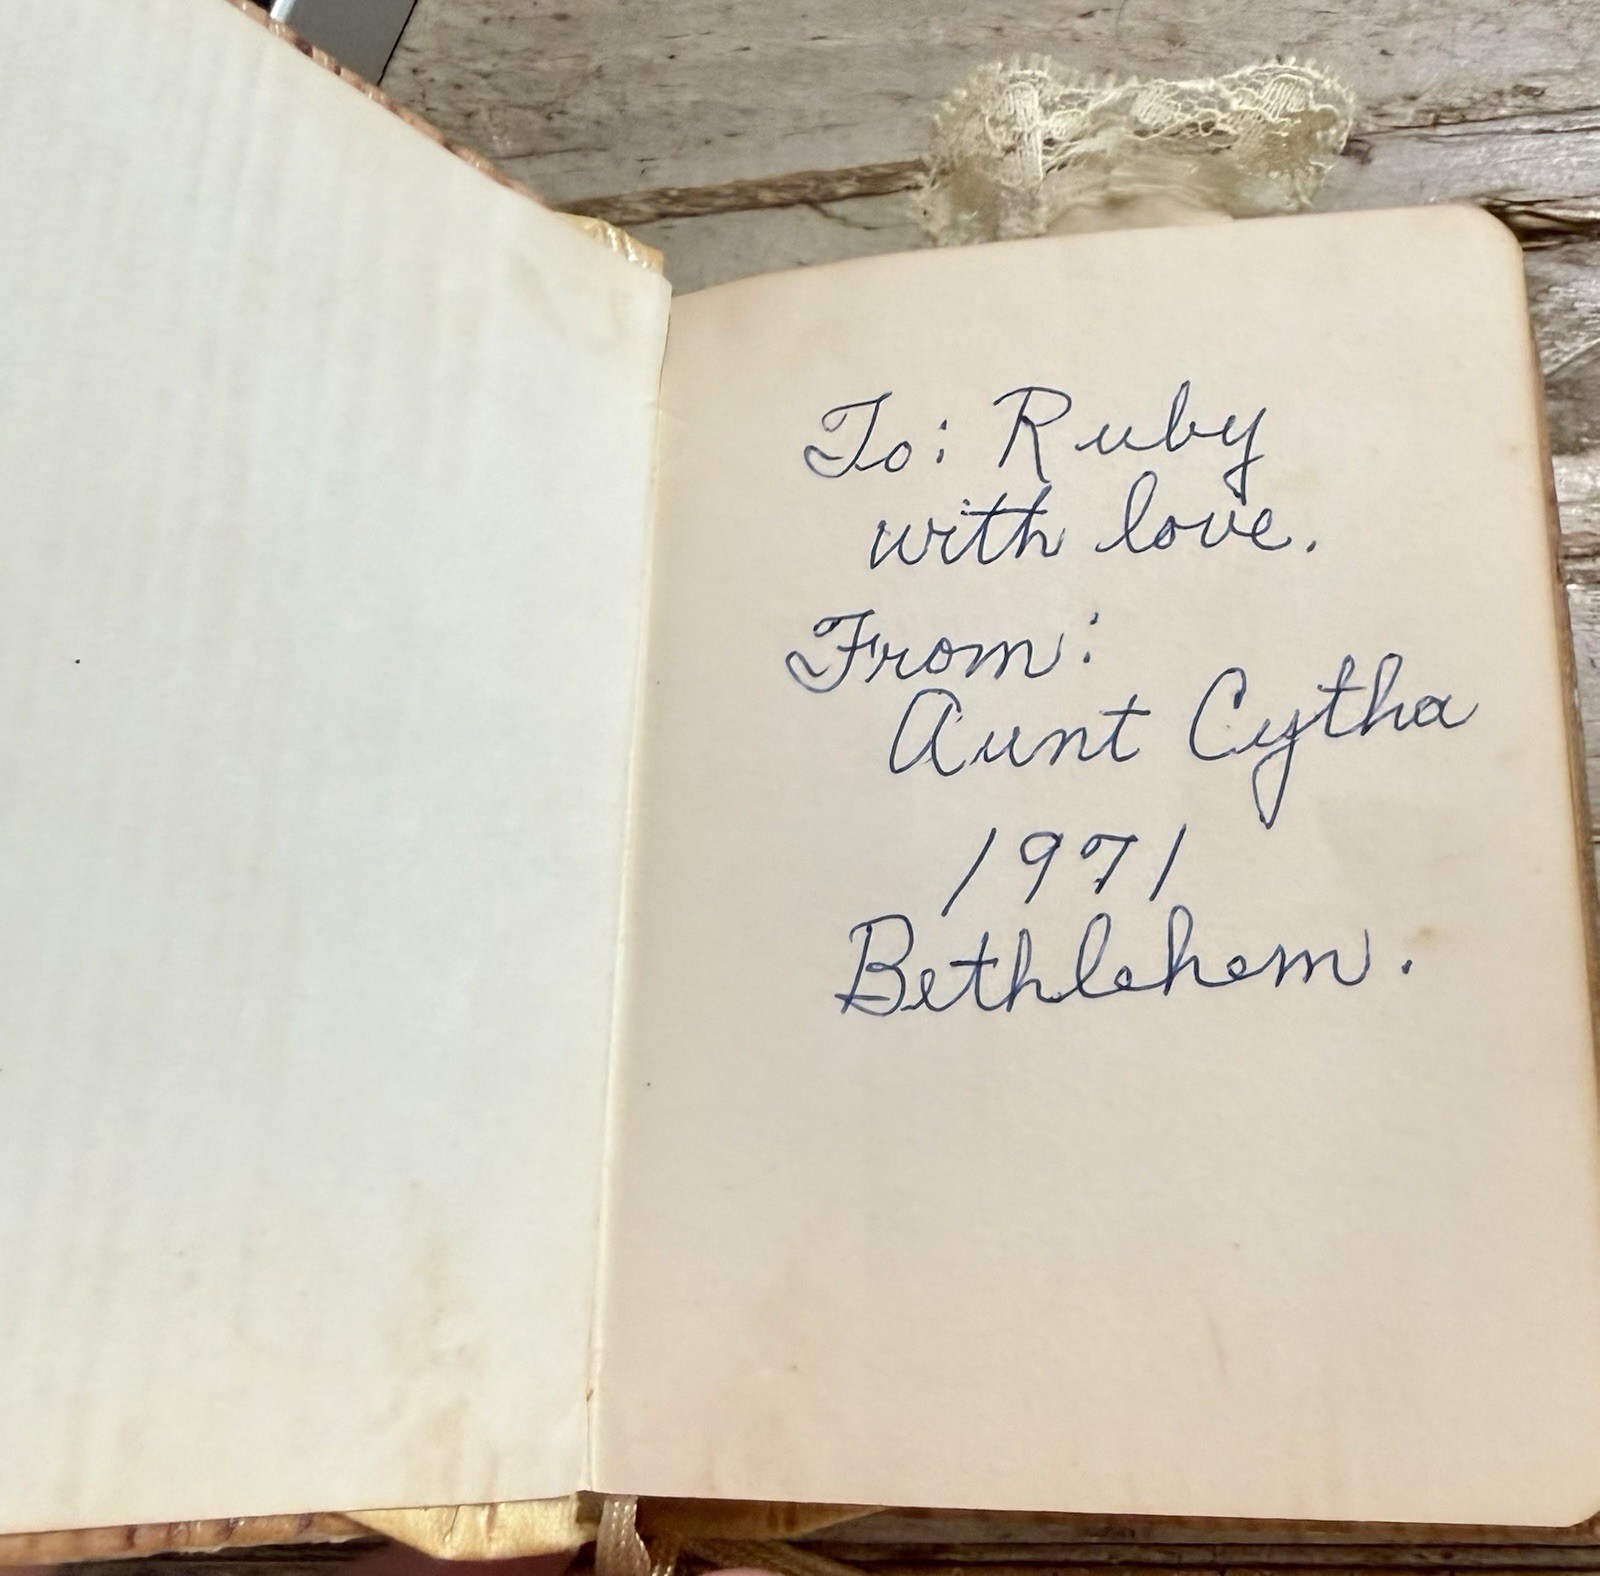 To: Ruby
with love.
From:
Aunt Cytha
1971
Bethlehem.